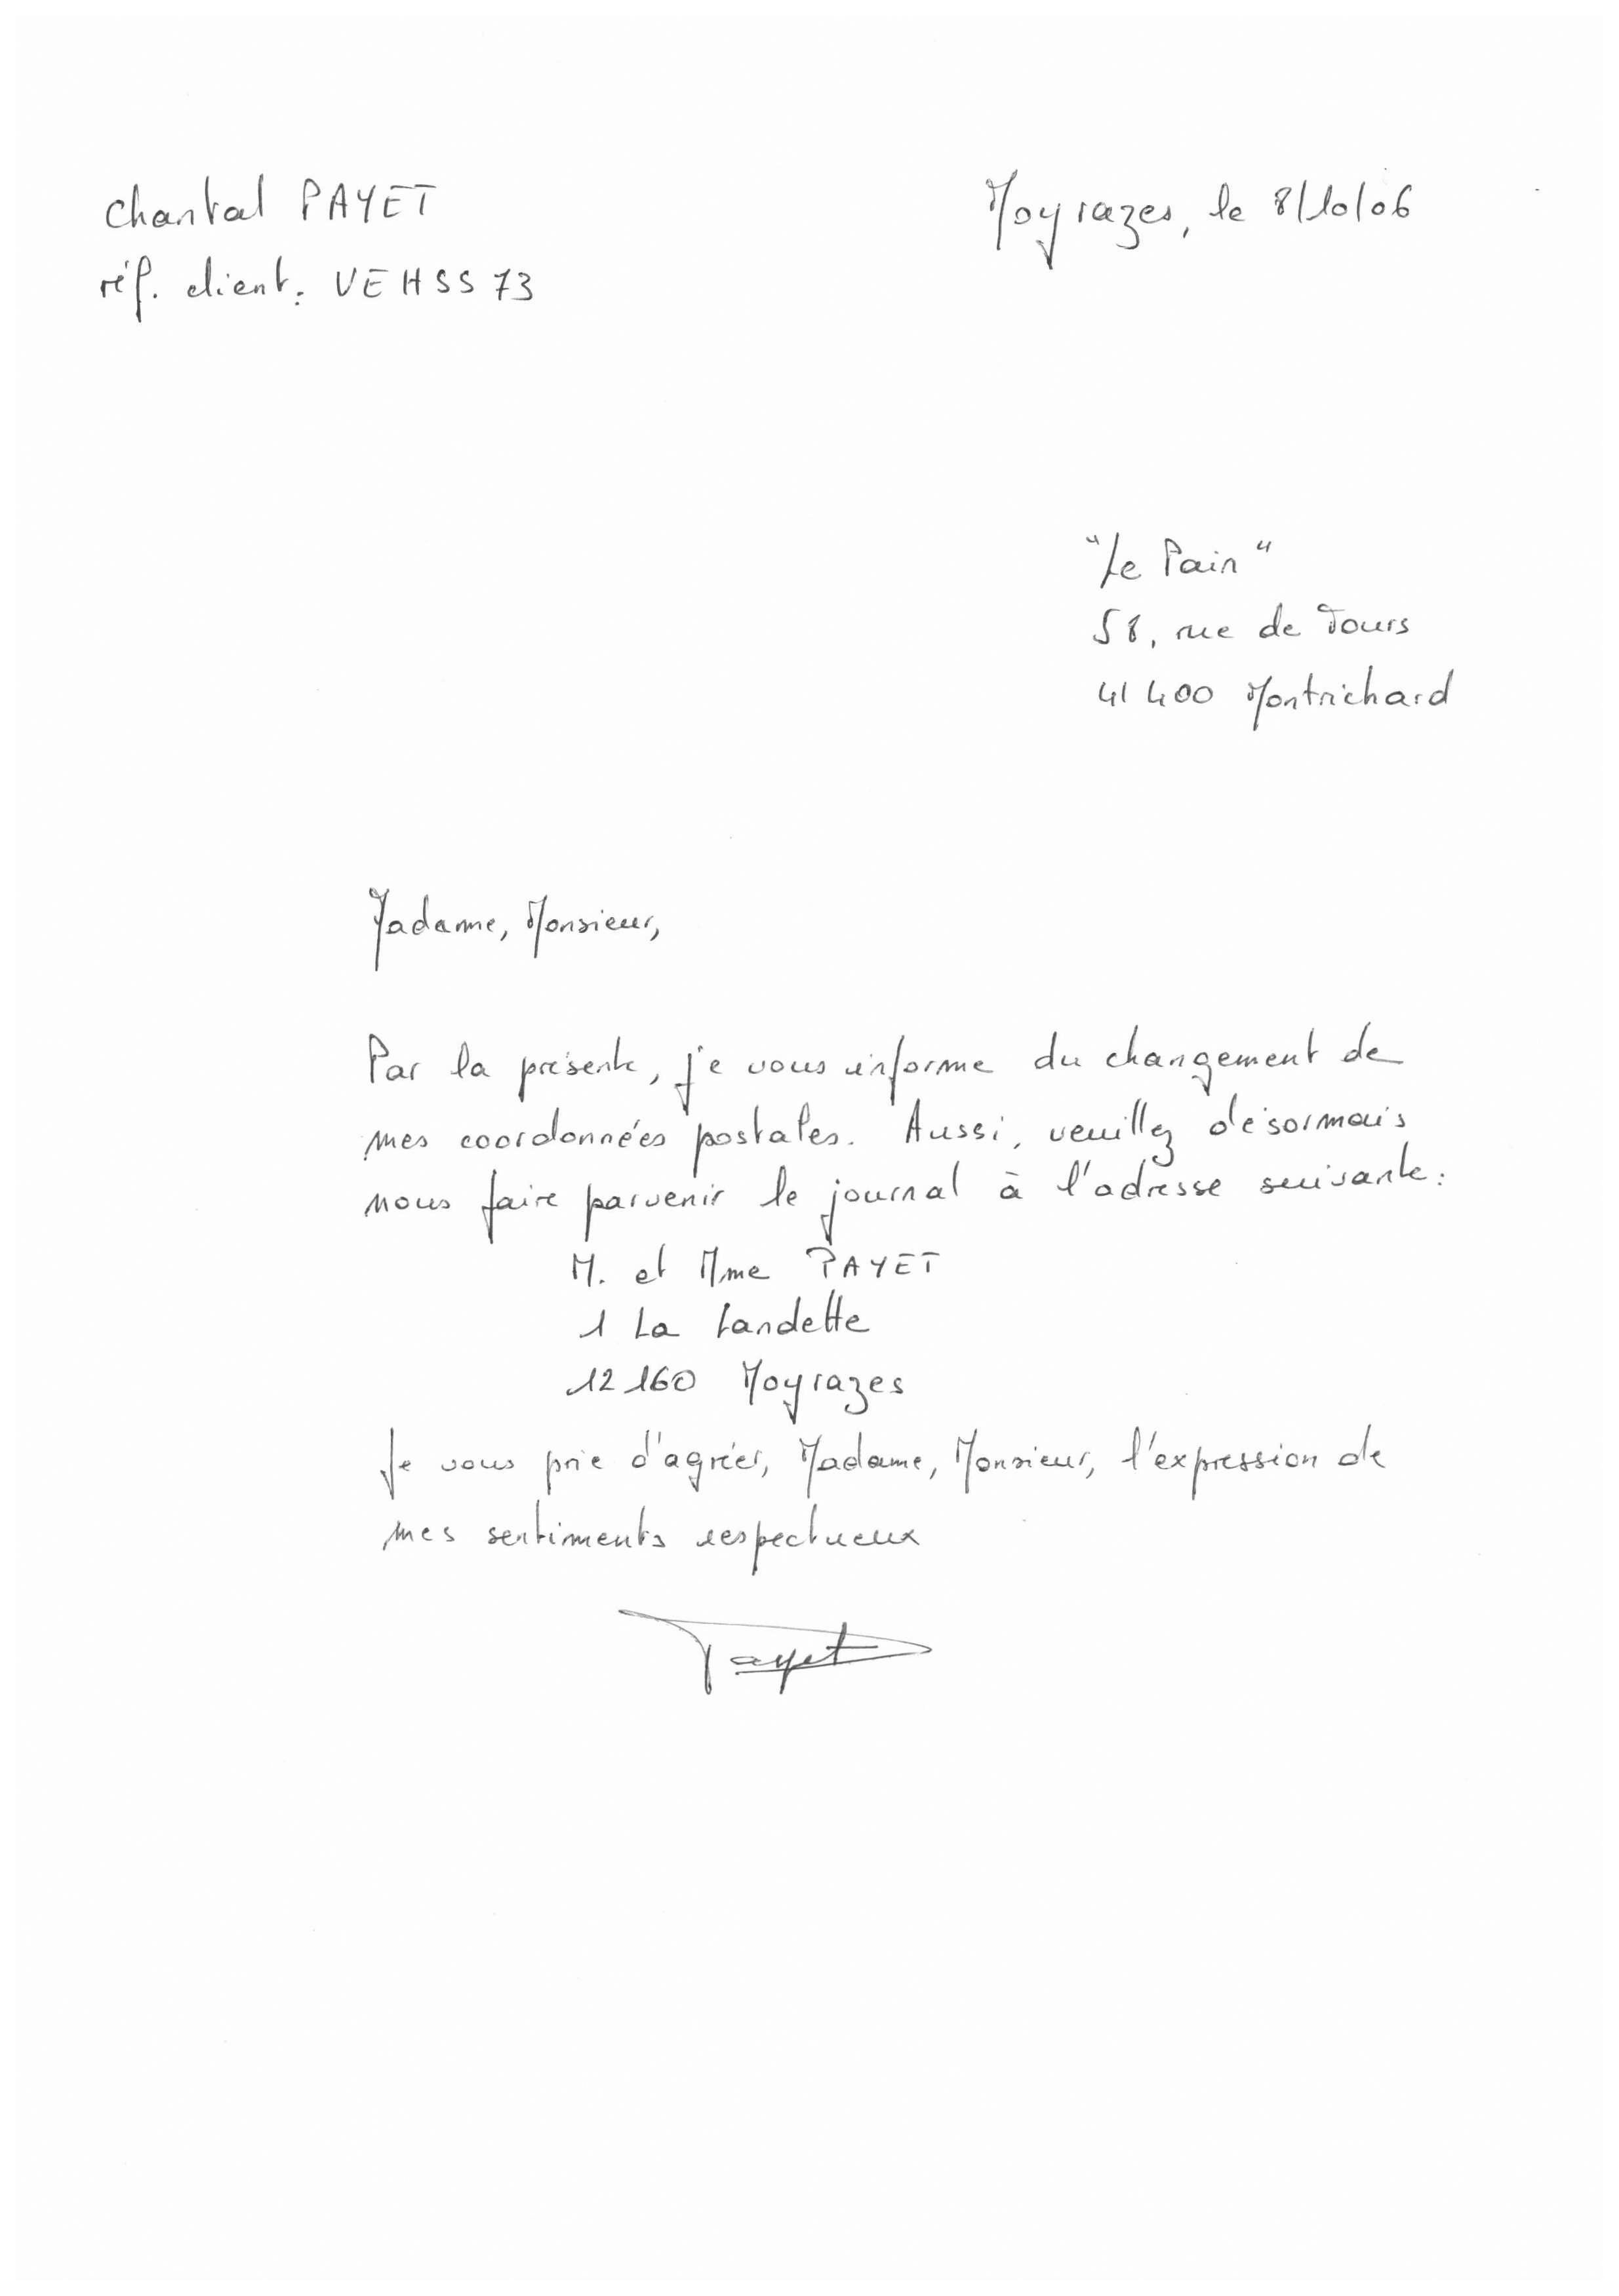 Chantal PAYET
réf. client: VEHSS 73
Moyrazes, le 8/10/06
"Le Pain"
58, rue de Tours
41400 Montrichard
Madame, Monsieur,
Par la présente, je vous informe du changement de
mes coordonnées postales. Aussi, veuillez désormais
nous faire parvenir le journal à l'adresse suivante:
M. et Mme PAYET
1 La Landette
12160 Moyrazes
Je vous prie d'agréer, Madame, Monsieur, l'expression de
mes sentiments respectueux
Payet